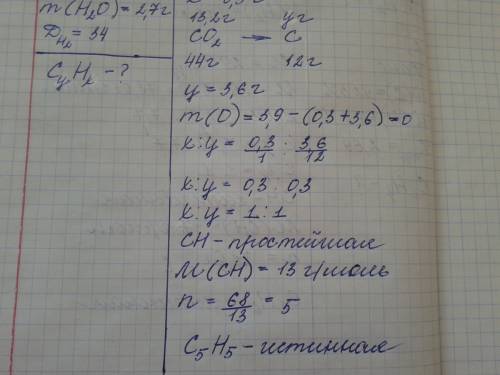 m(H₂O) = 2,7г
D_H₂ = 34
CyH₂ - ?
13,2г уг
CO₂ → C
44г 12г
y = 3,6г
m(O) = 3,9 - (0,3+3,6) = 0
x:y = 0,3/1 : 3,6/12
x:y = 0,3 : 0,3
x:y = 1:1
CH - простейшая
M(CH) = 13 г/моль
n = 68/13 = 5
C₅H₅ - истинная